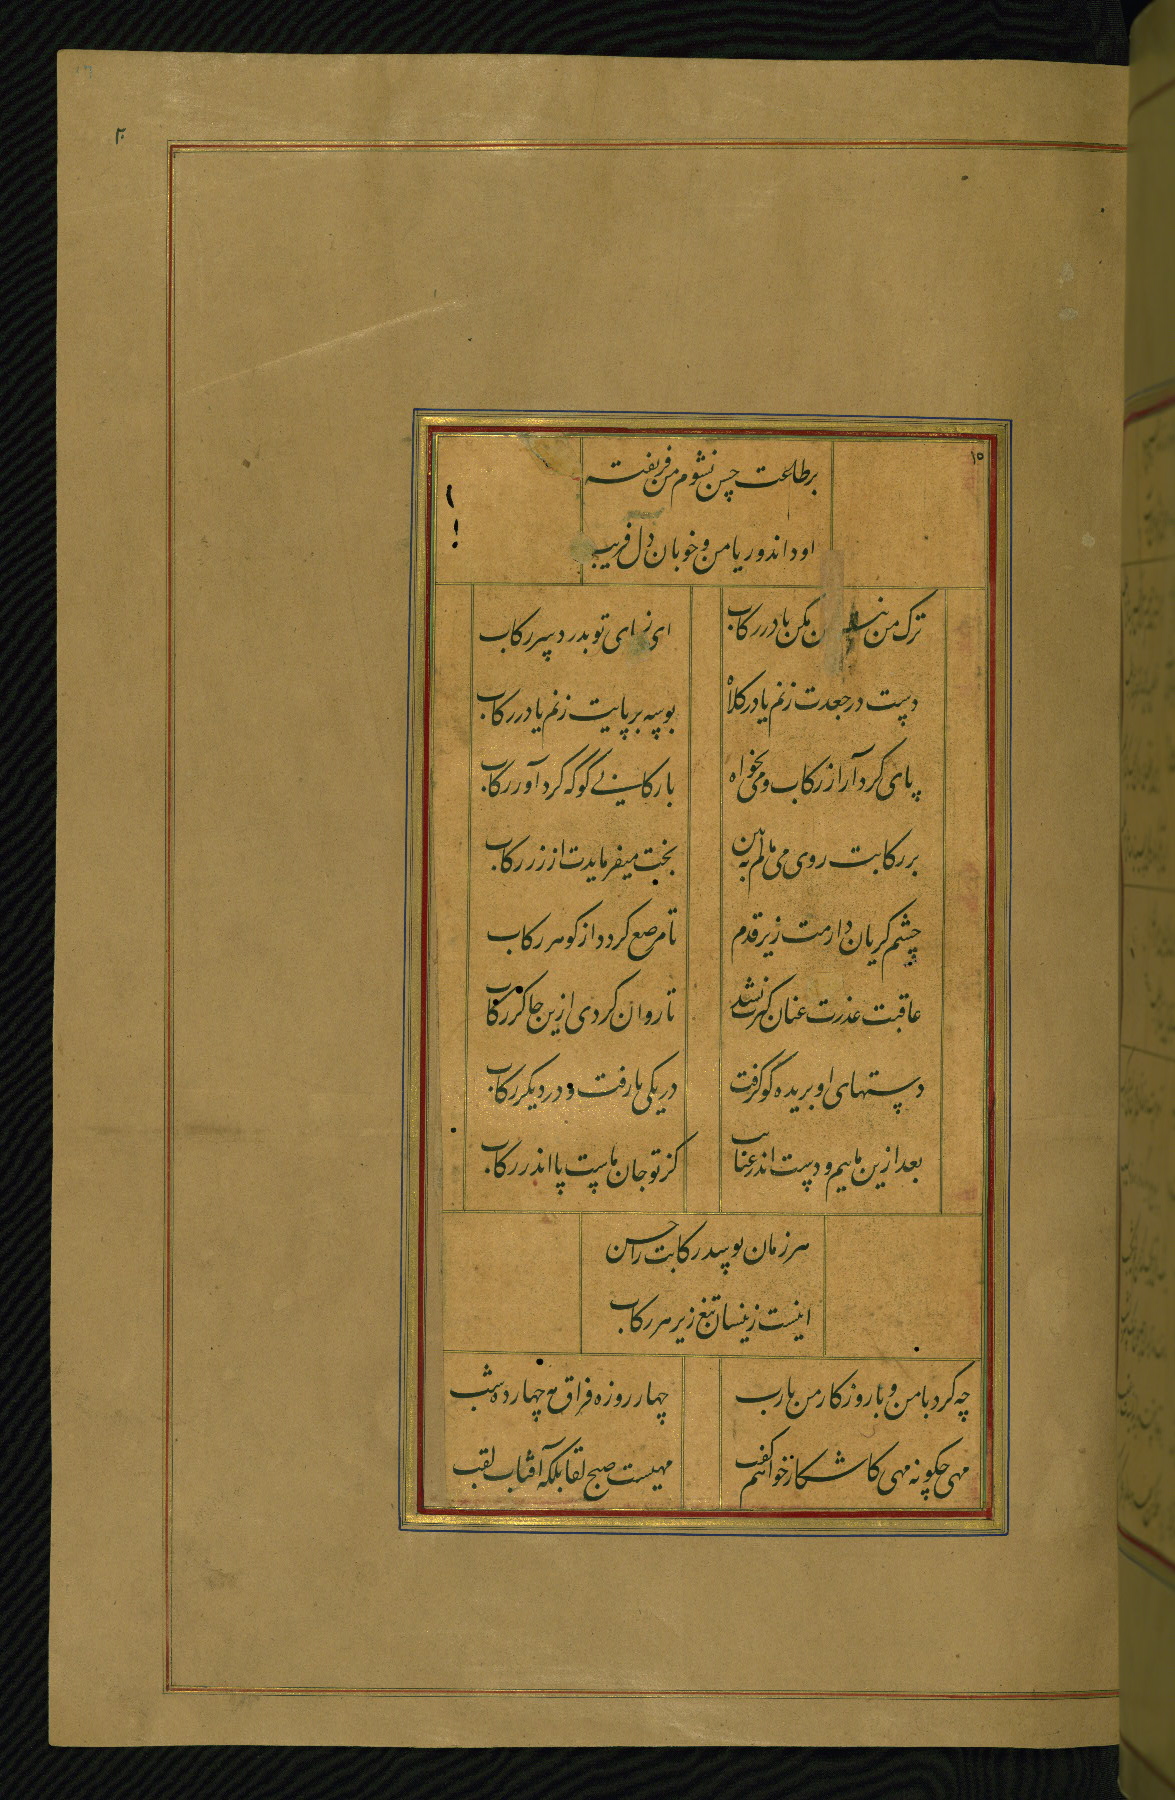 ۲۰
۱۵
بر طلعت حسن نشوم من فریفته
او داند و ریا من و خوبان دل فریب
ترک من مکن پا در رکاب
ای ز پای تو بدرد سر رکاب
دست در جعدت زنم یا در کلاه
بوسه بر پایت زنم یا در رکاب
پای گرد آر از رکاب و می بخواه
بارکابی گو که گرد آور رکاب
بر رکابت روی می مالم به بین
بخت میفرمایدت از زر رکاب
چشم گریان دارمت زیر قدم
تا مرصع گردد از گوهر رکاب
عاقبت عذرت عنان نشد
تا روان کردی ازین جا رکاب
دستهای او بریده گو گرفت
در یکی پا رفت و در دیگر رکاب
بعد ازین ماییم و دست اندر عنا
کز تو جان ماست پا اندر رکاب
هر زمان بوسد رکابت را حسن
اینست زینسان تیغ زیر هر رکاب
چه کرد با من و با روزگار من یارب
چهار روزه فراق مه چهارده شب
مهی چگونه مهی کاشکار خواهم گفت
مهیست صبح لقا بلکه آفتاب لقب